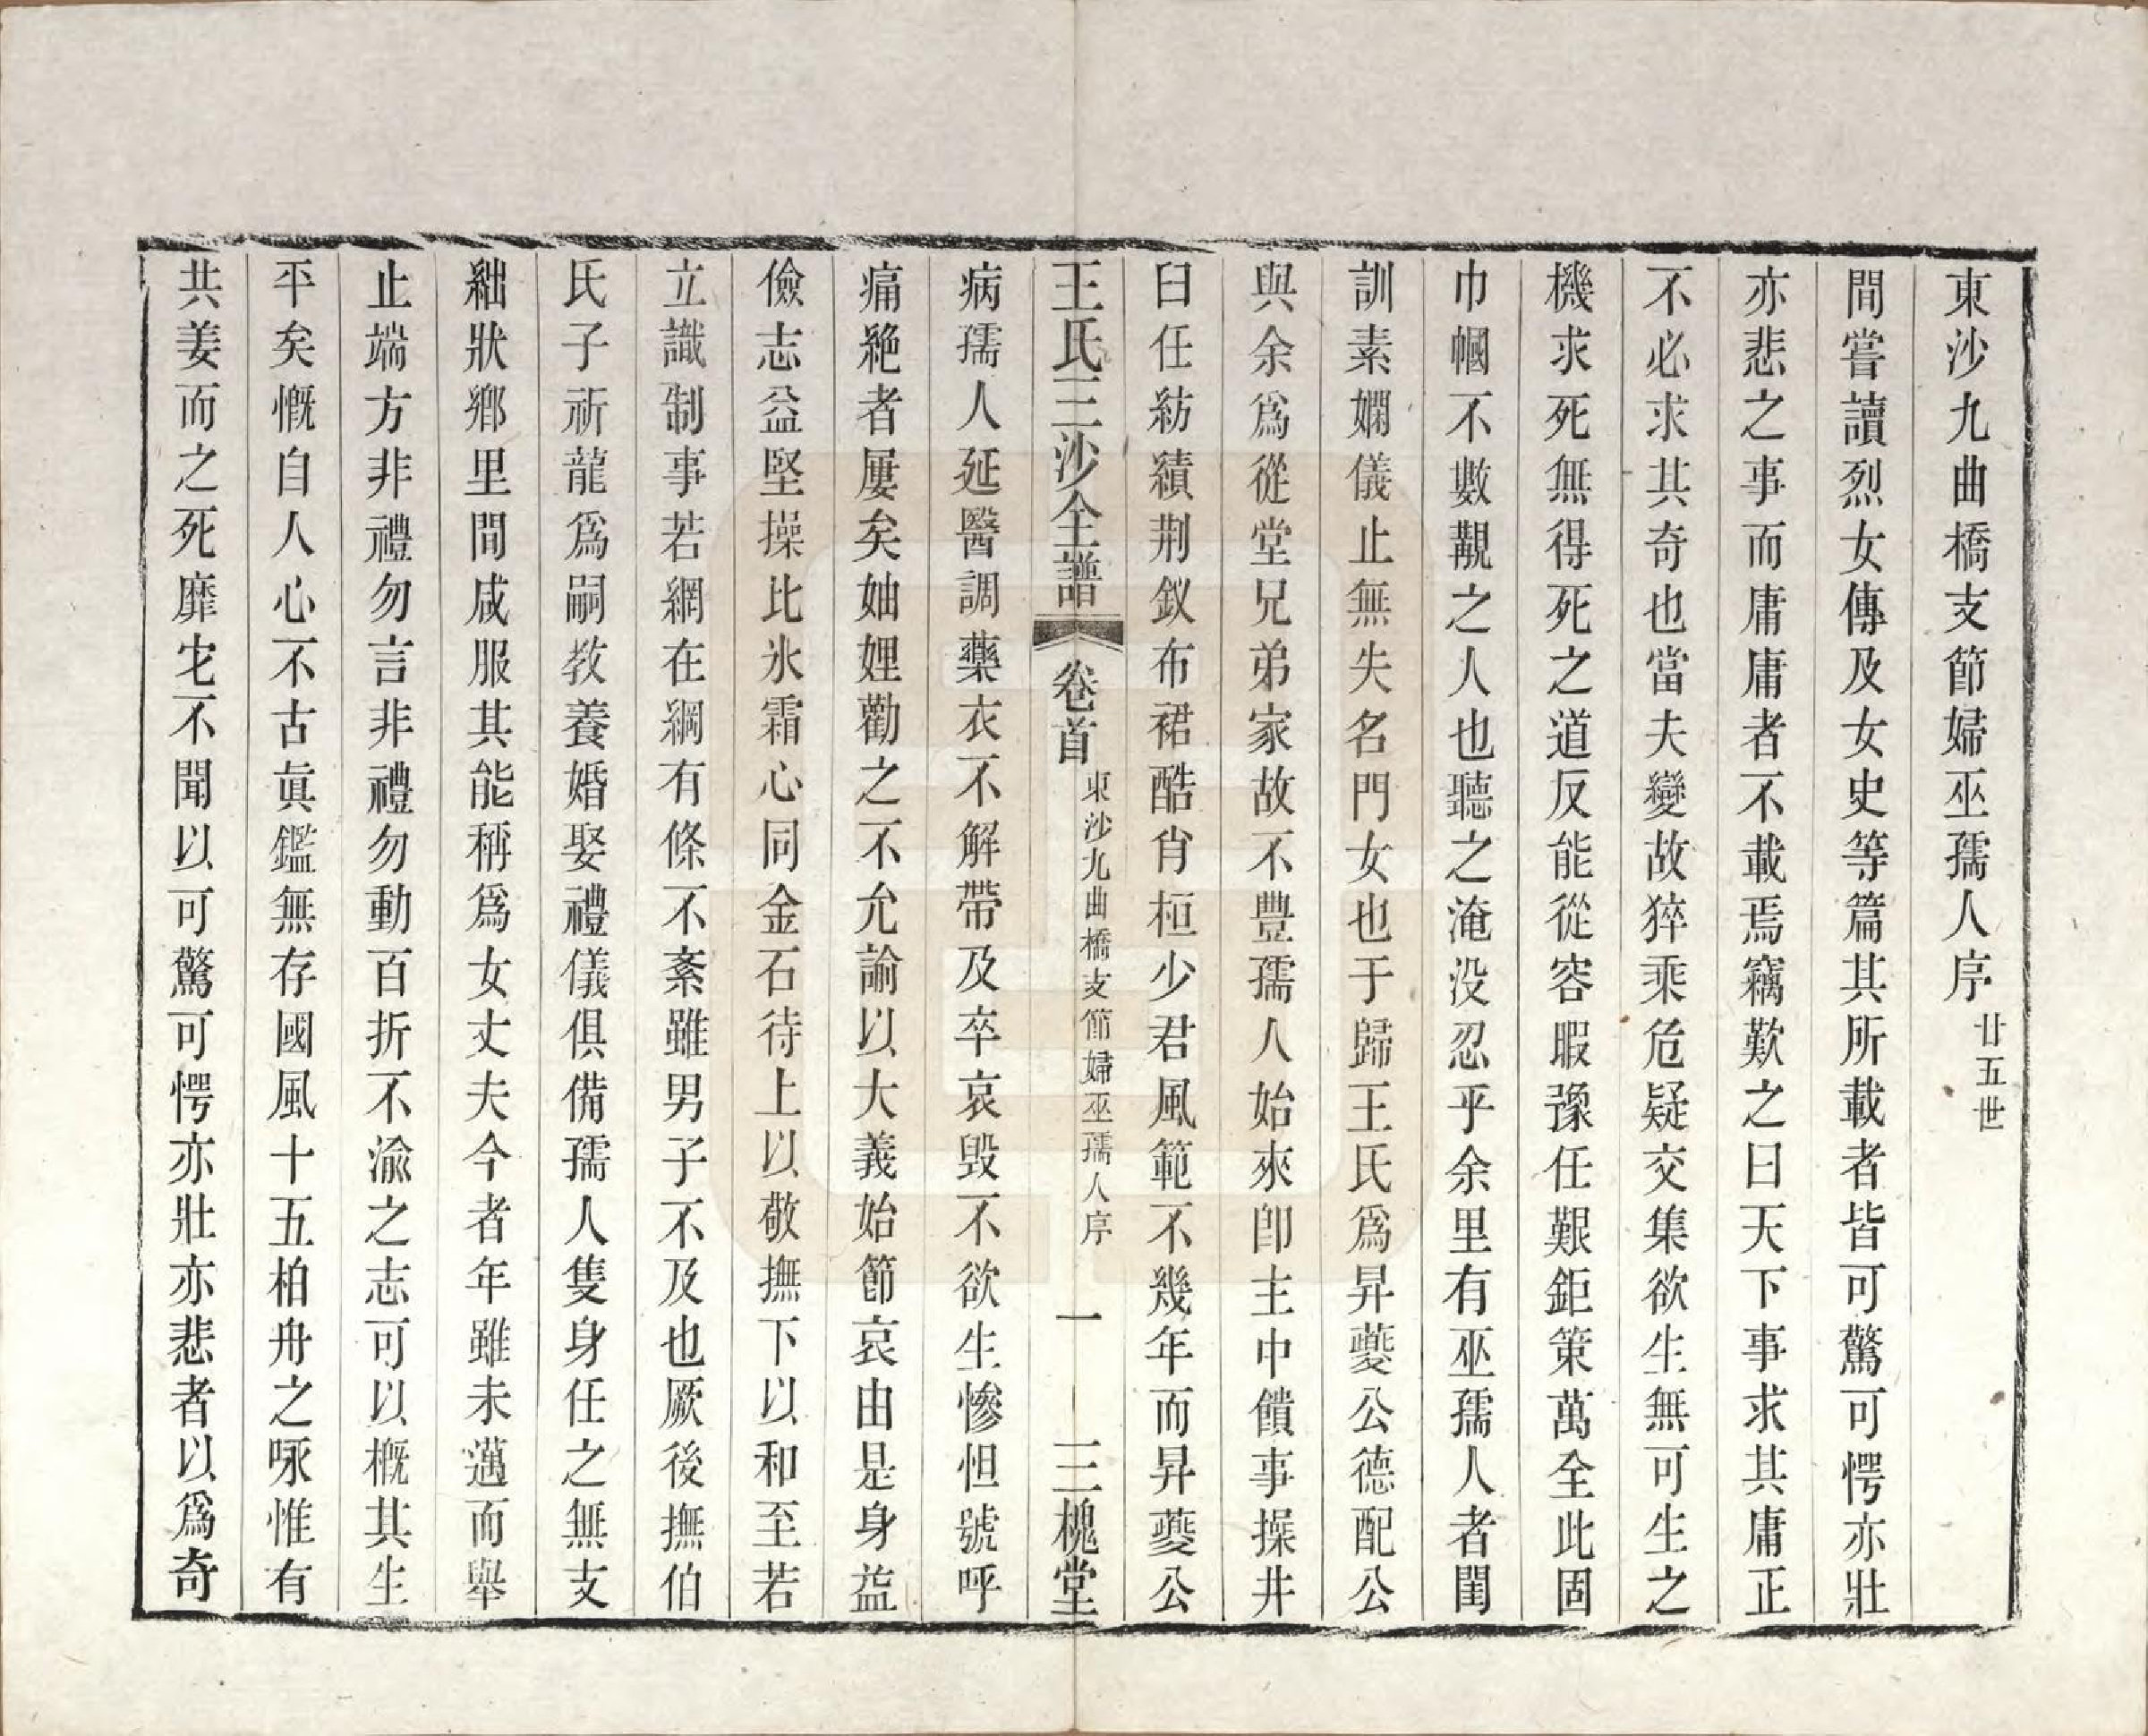 東沙九曲橋支節婦巫孺人序 廿五世
間嘗讀烈女傳及女史等篇其所載者皆可驚可愕亦壯
亦悲之事而庸庸者不載焉竊歎之曰天下事求其庸正
不必求其奇也當夫變故猝乘危疑交集欲生無可生之
機求死無得死之道反能從容暇豫任艱鉅策萬全此固
巾幗不數覯之人也聽之淹没忍乎余里有巫孺人者閨
訓素嫻儀止無失名門女也于歸王氏爲昇夔公德配公
與余爲從堂兄弟家故不豐孺人始來卽主中饋事操井
臼任紡績荆釵布裙酷肖桓少君風範不幾年而昇夔公
王氏三沙全譜 卷首 東沙九曲橋支節婦巫孺人序 一 三槐堂
病孺人延醫調藥衣不解帶及卒哀毁不欲生慘怛號呼
痛絶者屢矣妯娌勸之不允諭以大義始節哀由是身益
儉志益堅操比氷霜心同金石待上以敬撫下以和至若
立識制事若網在綱有條不紊雖男子不及也厥後撫伯
氏子祈龍爲嗣教養婚娶禮儀俱備孺人隻身任之無支
絀狀鄉里間咸服其能稱爲女丈夫今者年雖未邁而舉
止端方非禮勿言非禮勿動百折不渝之志可以概其生
平矣慨自人心不古眞鑑無存國風十五柏舟之咏惟有
共姜而之死靡它不聞以可驚可愕亦壯亦悲者以爲奇